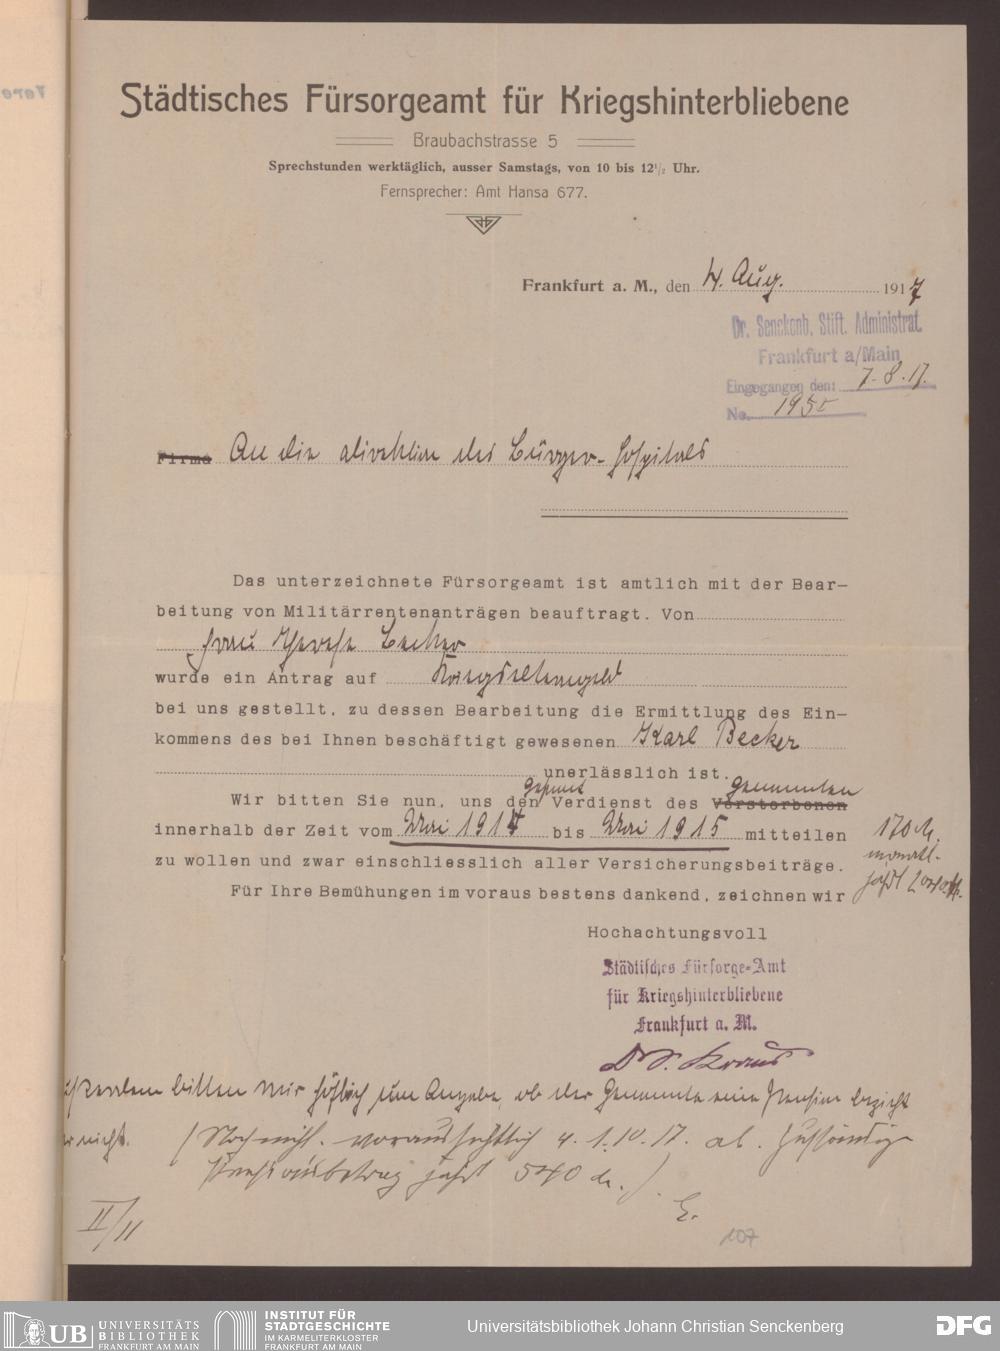 Städtisches Fürsorgeamt für Kriegshinterbliebene
Braubachstrasse 5
Sprechstunden werktäglich, ausser Samstags, von 10 bis 12½ Uhr.
Fernsprecher: Amt Hansa 677.
Frankfurt a. M., den 4. Aug. 1917
Dr. Senckenb. Stift. Administrat.
Frankfurt a/Main
Eingegangen den: 7.8.17.
No. 195
Firma An die Direktion des Bürger-Hospitals
Das unterzeichnete Fürsorgeamt ist amtlich mit der Bear-
beitung von Militärrentenanträgen beauftragt. Von
Frau Therese Becker
wurde ein Antrag auf Kriegselterngeld
bei uns gestellt, zu dessen Bearbeitung die Ermittlung des Ein-
kommens des bei Ihnen beschäftigt gewesenen Karl Becker
unerlässlich ist.
gesamt Genannten
Wir bitten Sie nun, uns den Verdienst des Verstorbenen
innerhalb der Zeit vom Mai 1914 bis Mai 1915 mitteilen
170 M.
monatl.
zu wollen und zwar einschliesslich aller Versicherungsbeiträge.
jährl 2040 M.
Für Ihre Bemühungen im voraus bestens dankend, zeichnen wir
Hochachtungsvoll
Städtisches Fürsorge-Amt
für Kriegshinterbliebene
Frankfurt a. M.
Dr. Kraus
bitten wir höflich um Angabe, ob der Genannte eine Pension bezieht
nicht. (Noch nicht. voraussichtlich v. 1.10.17. ab. Zuständige
Pensionsbetrag jährl 540 M.)
E.
II/11
107
UB UNIVERSITÄTS
BIBLIOTHEK
FRANKFURT AM MAIN
INSTITUT FÜR
STADTGESCHICHTE
IM KARMELITERKLOSTER
FRANKFURT AM MAIN
Universitätsbibliothek Johann Christian Senckenberg
DFG